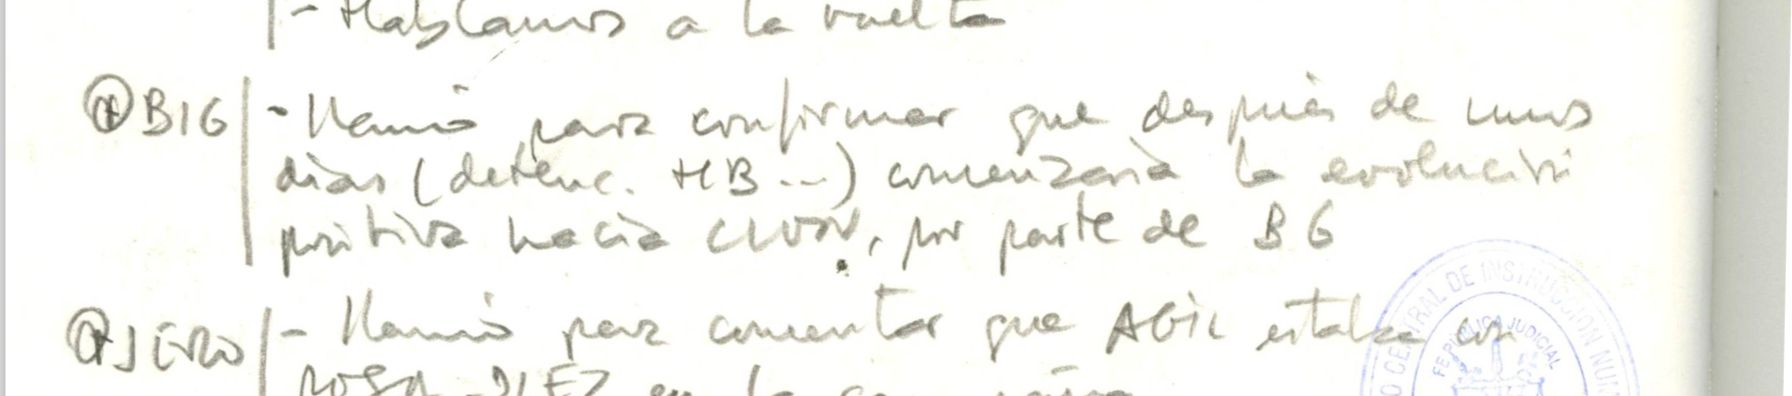 - Hablamos a la vuelta
BIG - Llamó para confirmar que después de unos
días (detenc. HB ...) comenzaría la evolución
positiva hacia , por parte de BG
JERO - Llamó para comentar que AGIL estaba con
ROSA DIEZ en la
CENTRAL DE INSTRUCCION NUM
FE PUBLICA JUDICIAL